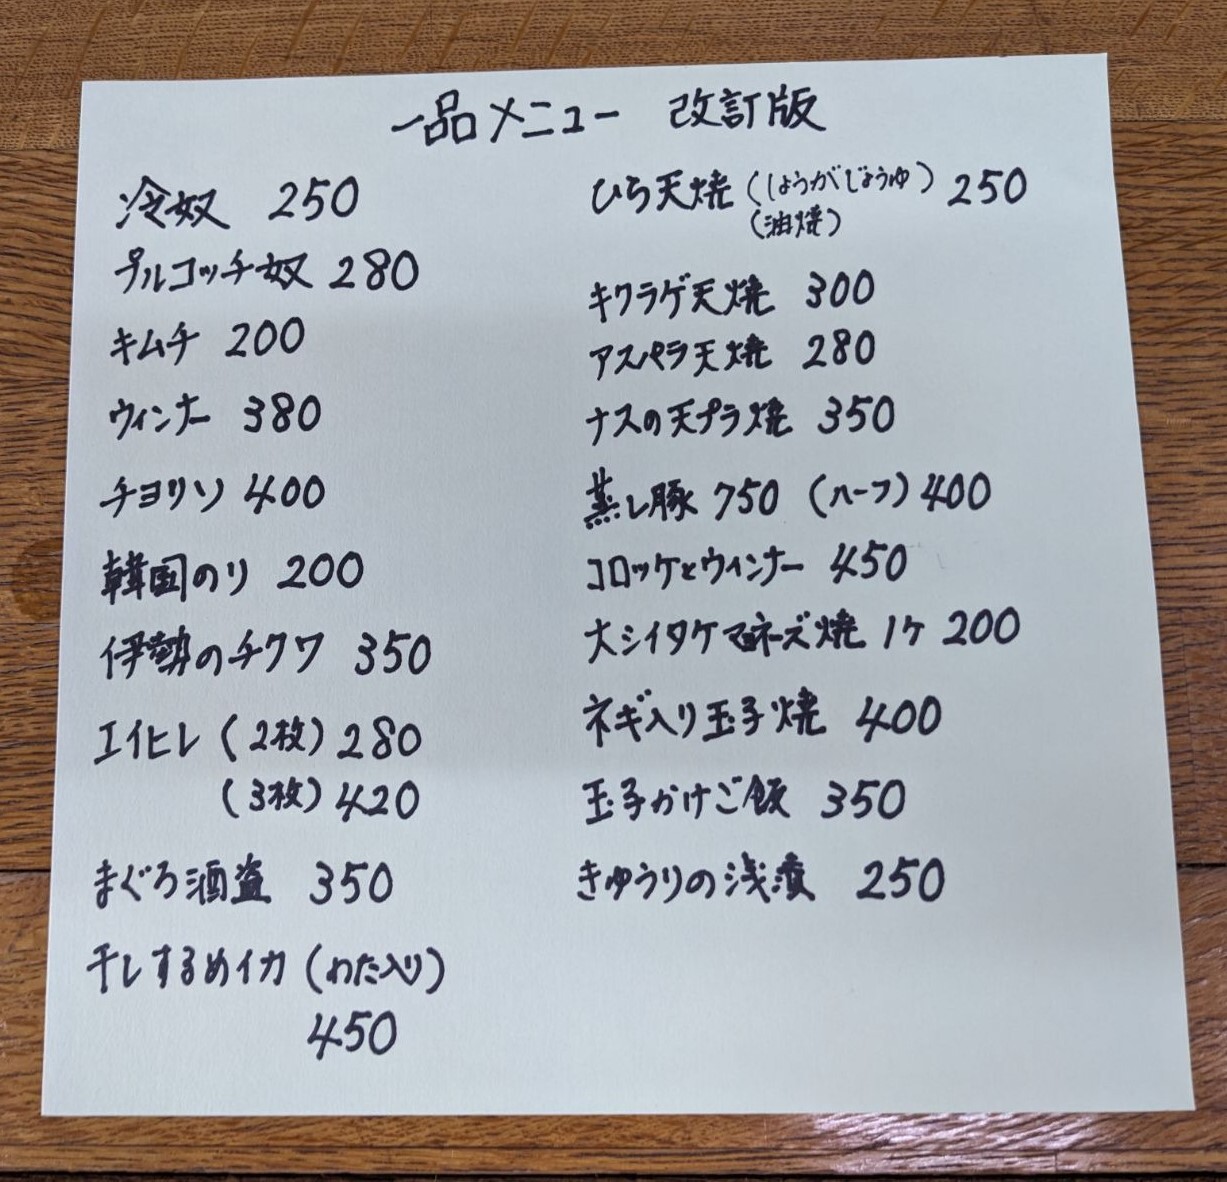 一品メニュー 改訂版
冷奴 250
プルコッチ奴 280
キムチ 200
ウィンナー 380
チョリソ 400
韓国のり 200
伊勢のチクワ 350
エイヒレ (2枚) 280
(3枚) 420
まぐろ酒盗 350
干しするめイカ (わた入り)
450
ひら天焼 (しょうがじょうゆ) 250
(油焼)
キクラゲ天焼 300
アスパラ天焼 280
ナスの天プラ焼 350
蒸し豚 750 (ハーフ) 400
コロッケとウィンナー 450
大シイタケマヨネーズ焼 1ケ 200
ネギ入り玉子焼 400
玉子かけご飯 350
きゅうりの浅漬 250